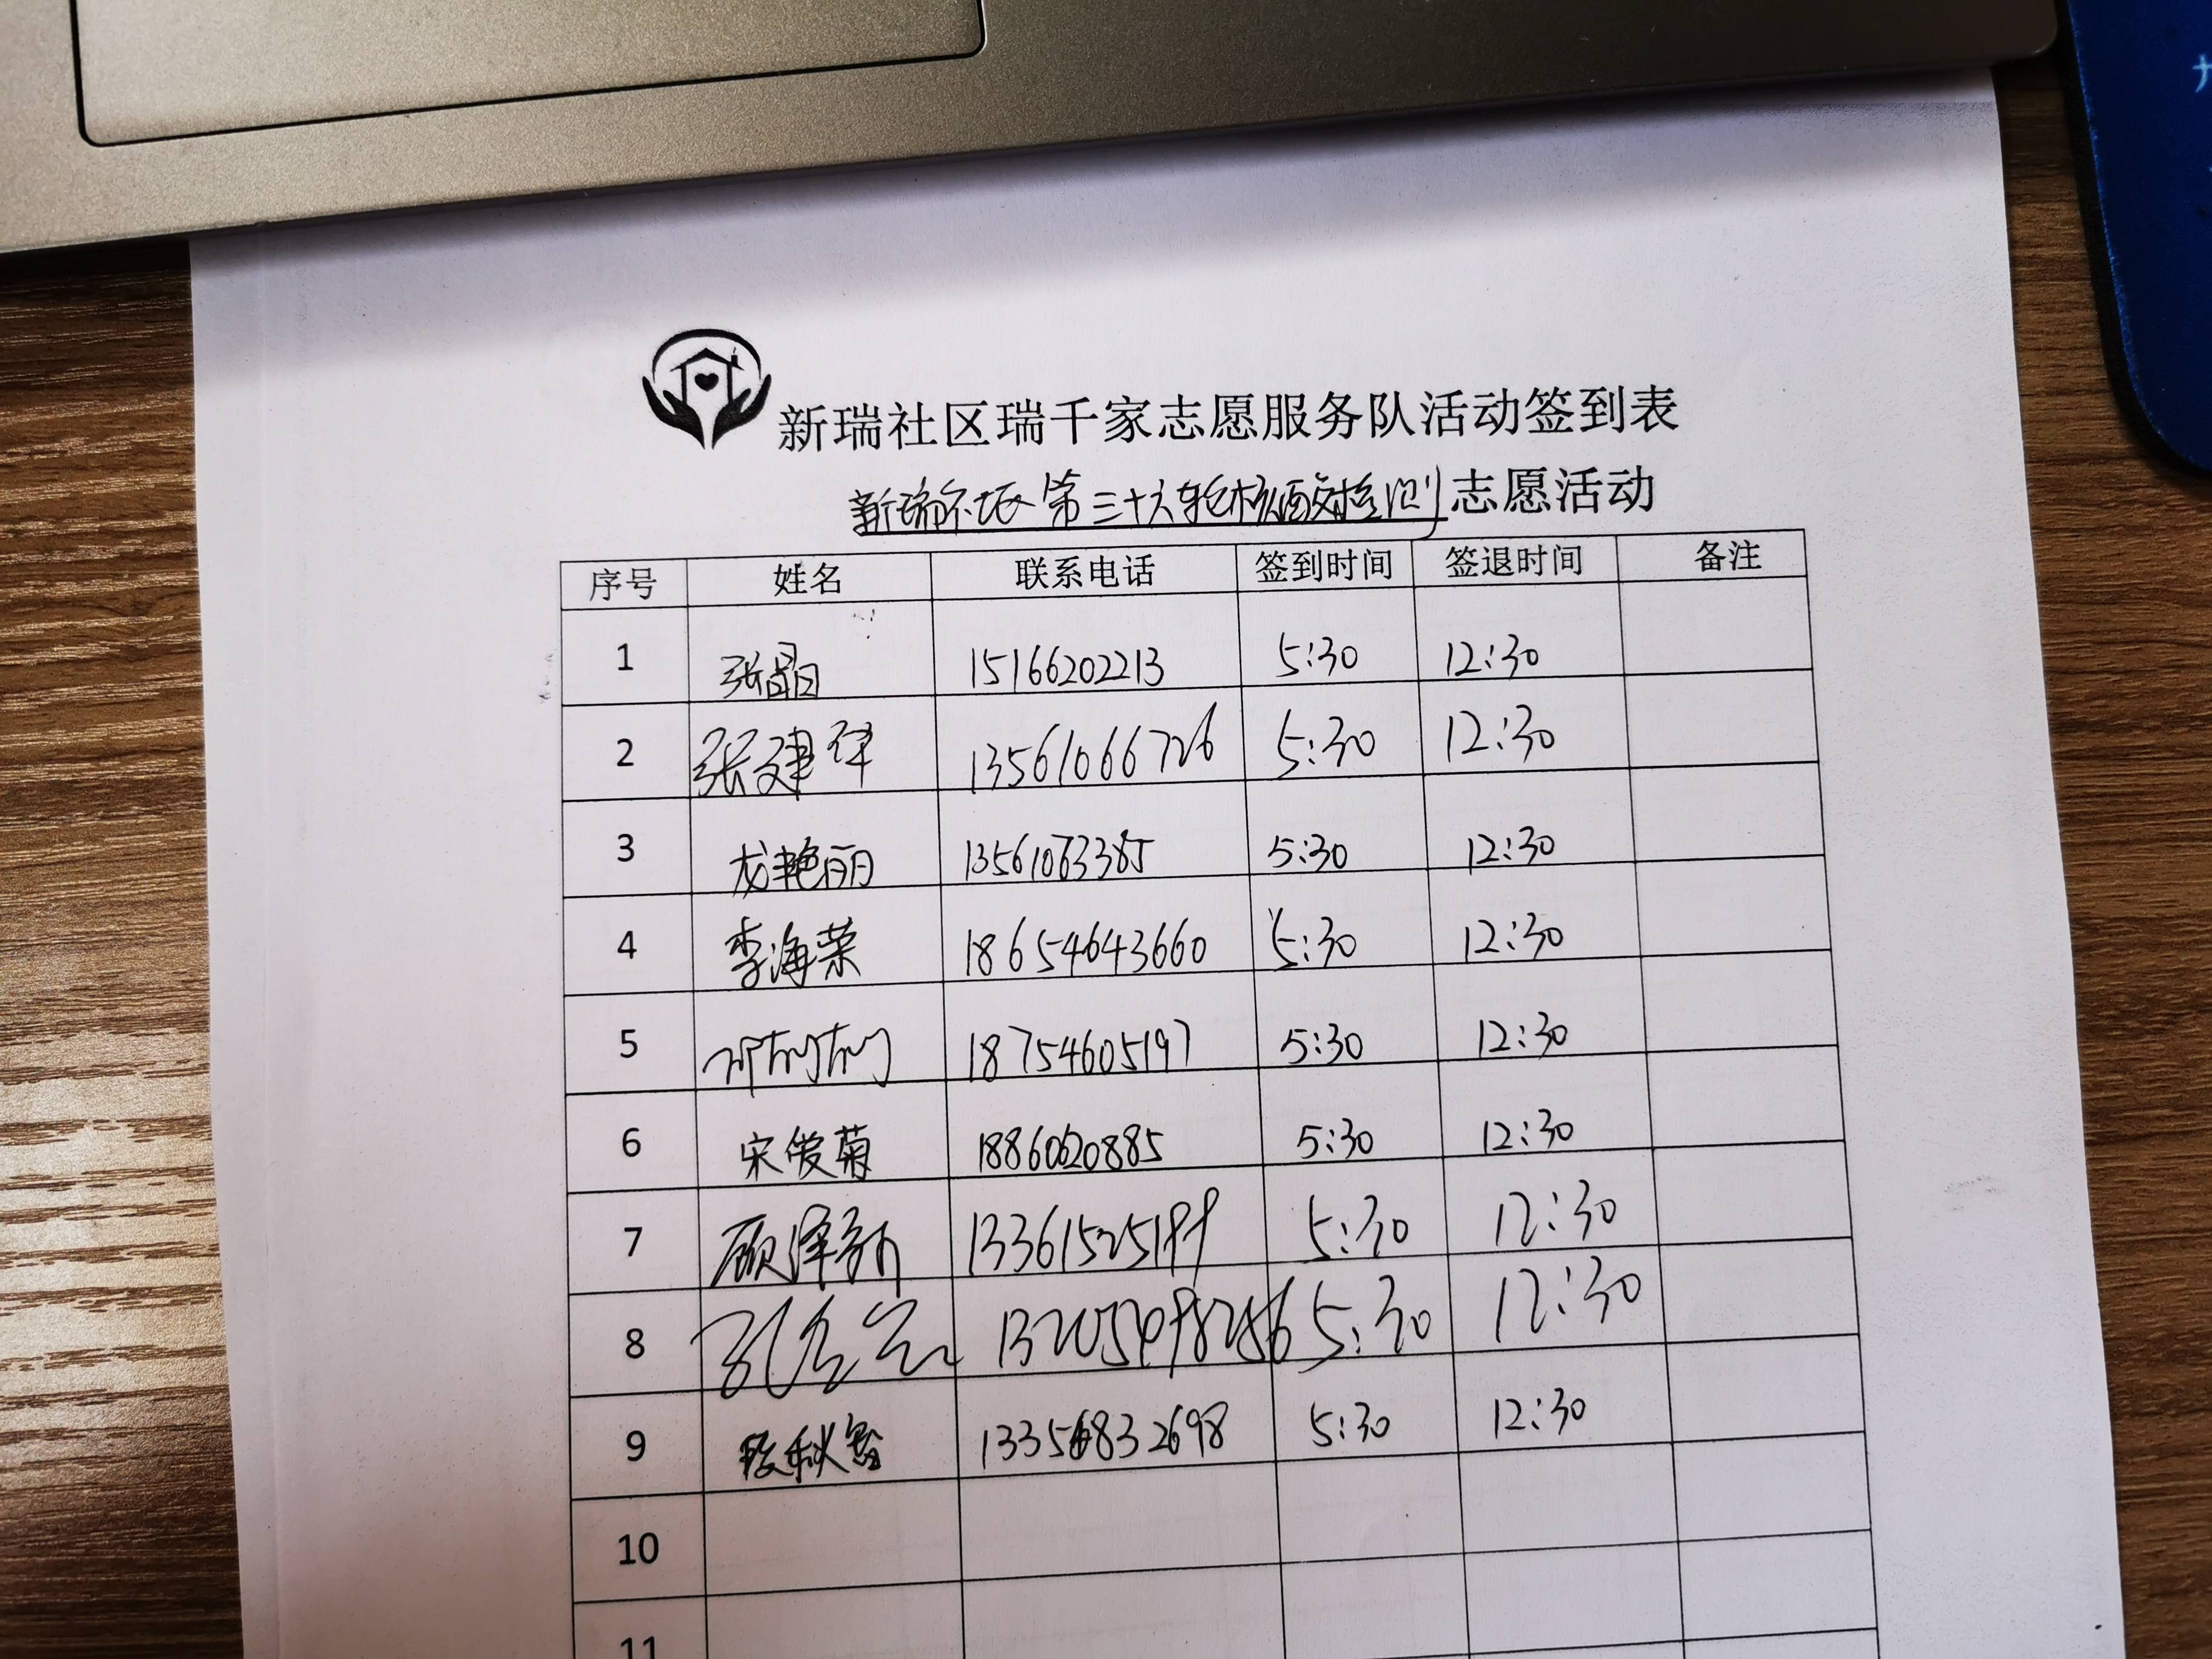 新瑞社区瑞千家志愿服务队活动签到表
新瑞社区第三十六轮核酸检测志愿活动
序号 姓名 联系电话 签到时间 签退时间 备注
1 张晶 15166202213 5:30 12:30
2 张建军 13561066726 5:30 12:30
3 龙艳丽 13561063385 5:30 12:30
4 李海荣 18654643660 5:30 12:30
5 18754605197 5:30 12:30
6 宋俊菊 18860620885 5:30 12:30
7 顾泽新 13361525199 5:30 12:30
8 5:30 12:30
9 5:30 12:30
10
11